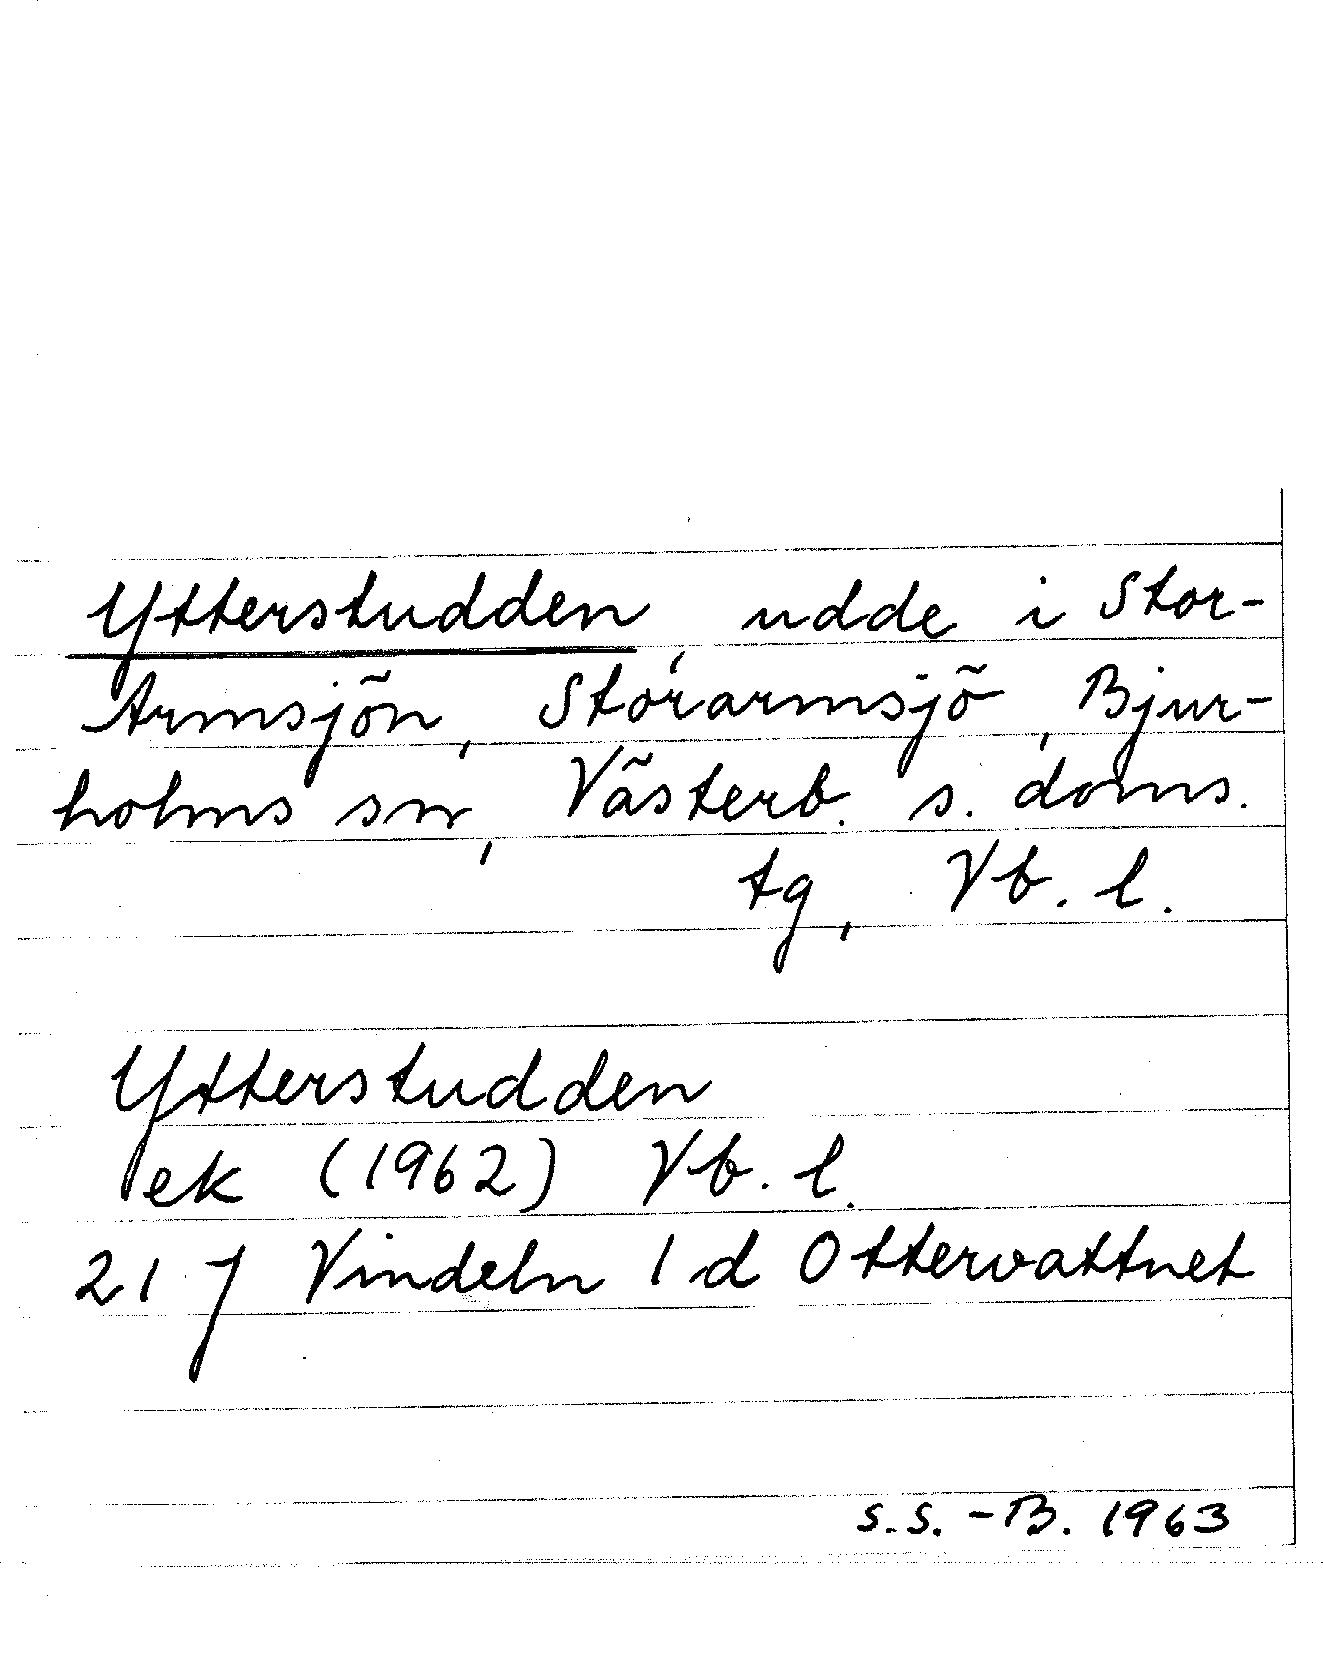 Ytterstudden, udde i Stor-
Armsjön, Storarmsjö, Bjur-
holms sn, Västerb. s. doms.
tg, Vb. l.
Ytterstudden
ek (1962) Vb. l.
21 J Vindeln 1 d Ottervattnet
S.S.-B. 1963